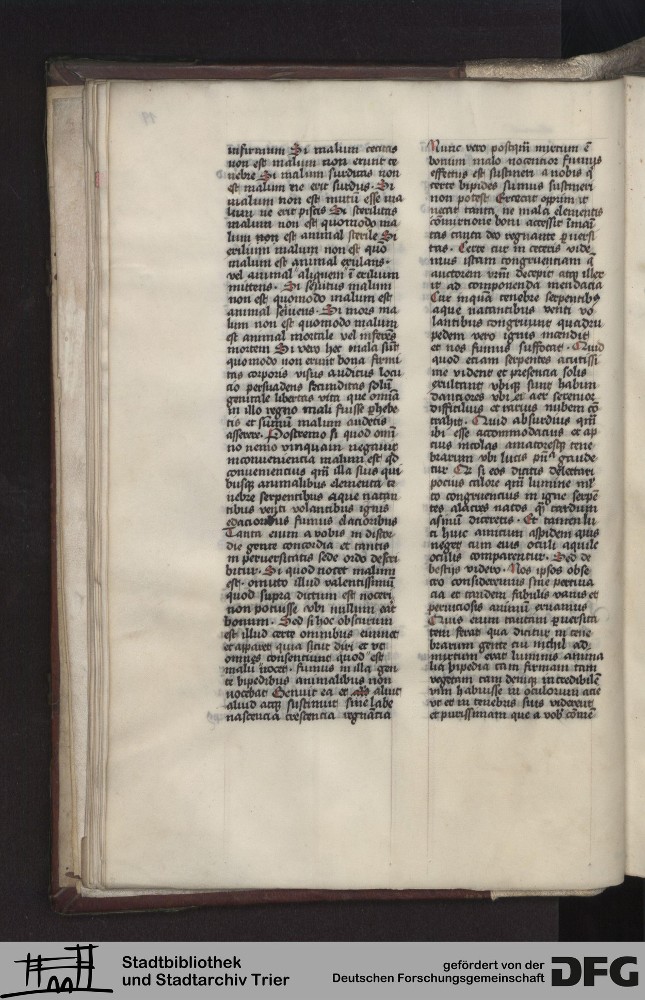 infirmum Si malum cecitas
non est malum non erunt te
nebre Si malum surditas non
est malum ne erit surdus. Si
malum non est mutū esse ma
lum ne erit piscis Si sterilitas
malum non est quomodo ma
lum non est animal sterile Si
exilium malum non est quo
malum est animal exulans.
vel animal aliquem ī exilium
mittens. Si seruitus malum
non est quomodo malum est
animal seruiens. Si mors ma
lum non est quomodo malum
est animal mortale vel inferēs
mortem Si vero hec mala sūt
quomodo non erunt bona firmi
tas corporis visus auditus locu
cio persuadens fecunditas solū
genitale libertas vita que omnia
in illo regno mali fuisse phibe
tis et sūmū malum audetis
asserere. Postremo si quod omī
no nemo vnquam negauit
inconuenientia malum est qd
conuenientius qm illa suis qui
busq animalibus elementa te
nebre serpentibus aque natan
tibus venti volantibus ignis
edacioribus fumus elacioribus
Tanta enim a vobis in discor
die gente concordia et tantis
in peruersitatis sede ordo descri
bitur. Si quod nocet malum
est. omitto illud valentissimū
quod supra dictum est noceri
non potuisse vbi nullum erat
bonum. Sed si hoc obscurum
est illud certe omnibus eminet
et apparet quia sicut dixi et vt
omnes consentiunt quod est
malū nocet. fumus in illa gen
te bipedibus animalibus non
nocebat Genuit ea et aluit
aluit atq sustinuit sine labe
nascencia crescencia regnācia
Nunc vero postqm mixtum ē
bonum malo nocentior fumus
effectus est sustineri a nobis q
certe bipedes sumus sustineri
non potest Excecat opprimit
necat tanta ne mala elementis
comixtione boni accessit īmani
tas tanta deo regnante puersi
tas. Certe cur in ceteris vide
mus istam congruentiam q
auctorem vrm decepit atq illex
it ad componenda mendacia
Cur inquā tenebre serpentibȝ
aque natantibus venti vo
lantibus congruunt quadru
pedem vero ignis incendit
et nos fumus suffocat. Quid
quod etiam serpentes acutissi
me vident et presencia solis
exultant vbiq sunt habun
danciores vbi et aer serenior
difficilius et rarius nubem cō
trahit. Quid absurdius qm
ibi esse accommodacius et ap
cius incolas amatoresq tene
brarum vbi lucis pūa gaude
tur Et si eos dicitis delectari
pocius calore qm lumine ml
to congruencius in igne serpē
tes alacres natos q tardum
asinū diceretis. Et tamen lu
ci huic amicum aspidem quis
neget cum eius oculi aquile
oculis comparentur. Sed de
bestijs videro. Nos ipsos obse
cro consideremus sine pertina
cia et tandem fabulis vanis et
perniciosis animū exuamus
Quis enim tantam puersita
tem ferat qua dicitur in tene
brarum gente cui nichil ad
mixtum erat luminis anima
lia bipedia tam firmam tam
vegetam tam deniq incredibilē
vim habuisse in oculorum acie
vt et in tenebris suis viderent
et purissimam que a vob cōme
Stadtbibliothek
und Stadtarchiv Trier
gefördert von der
Deutschen Forschungsgemeinschaft
DFG